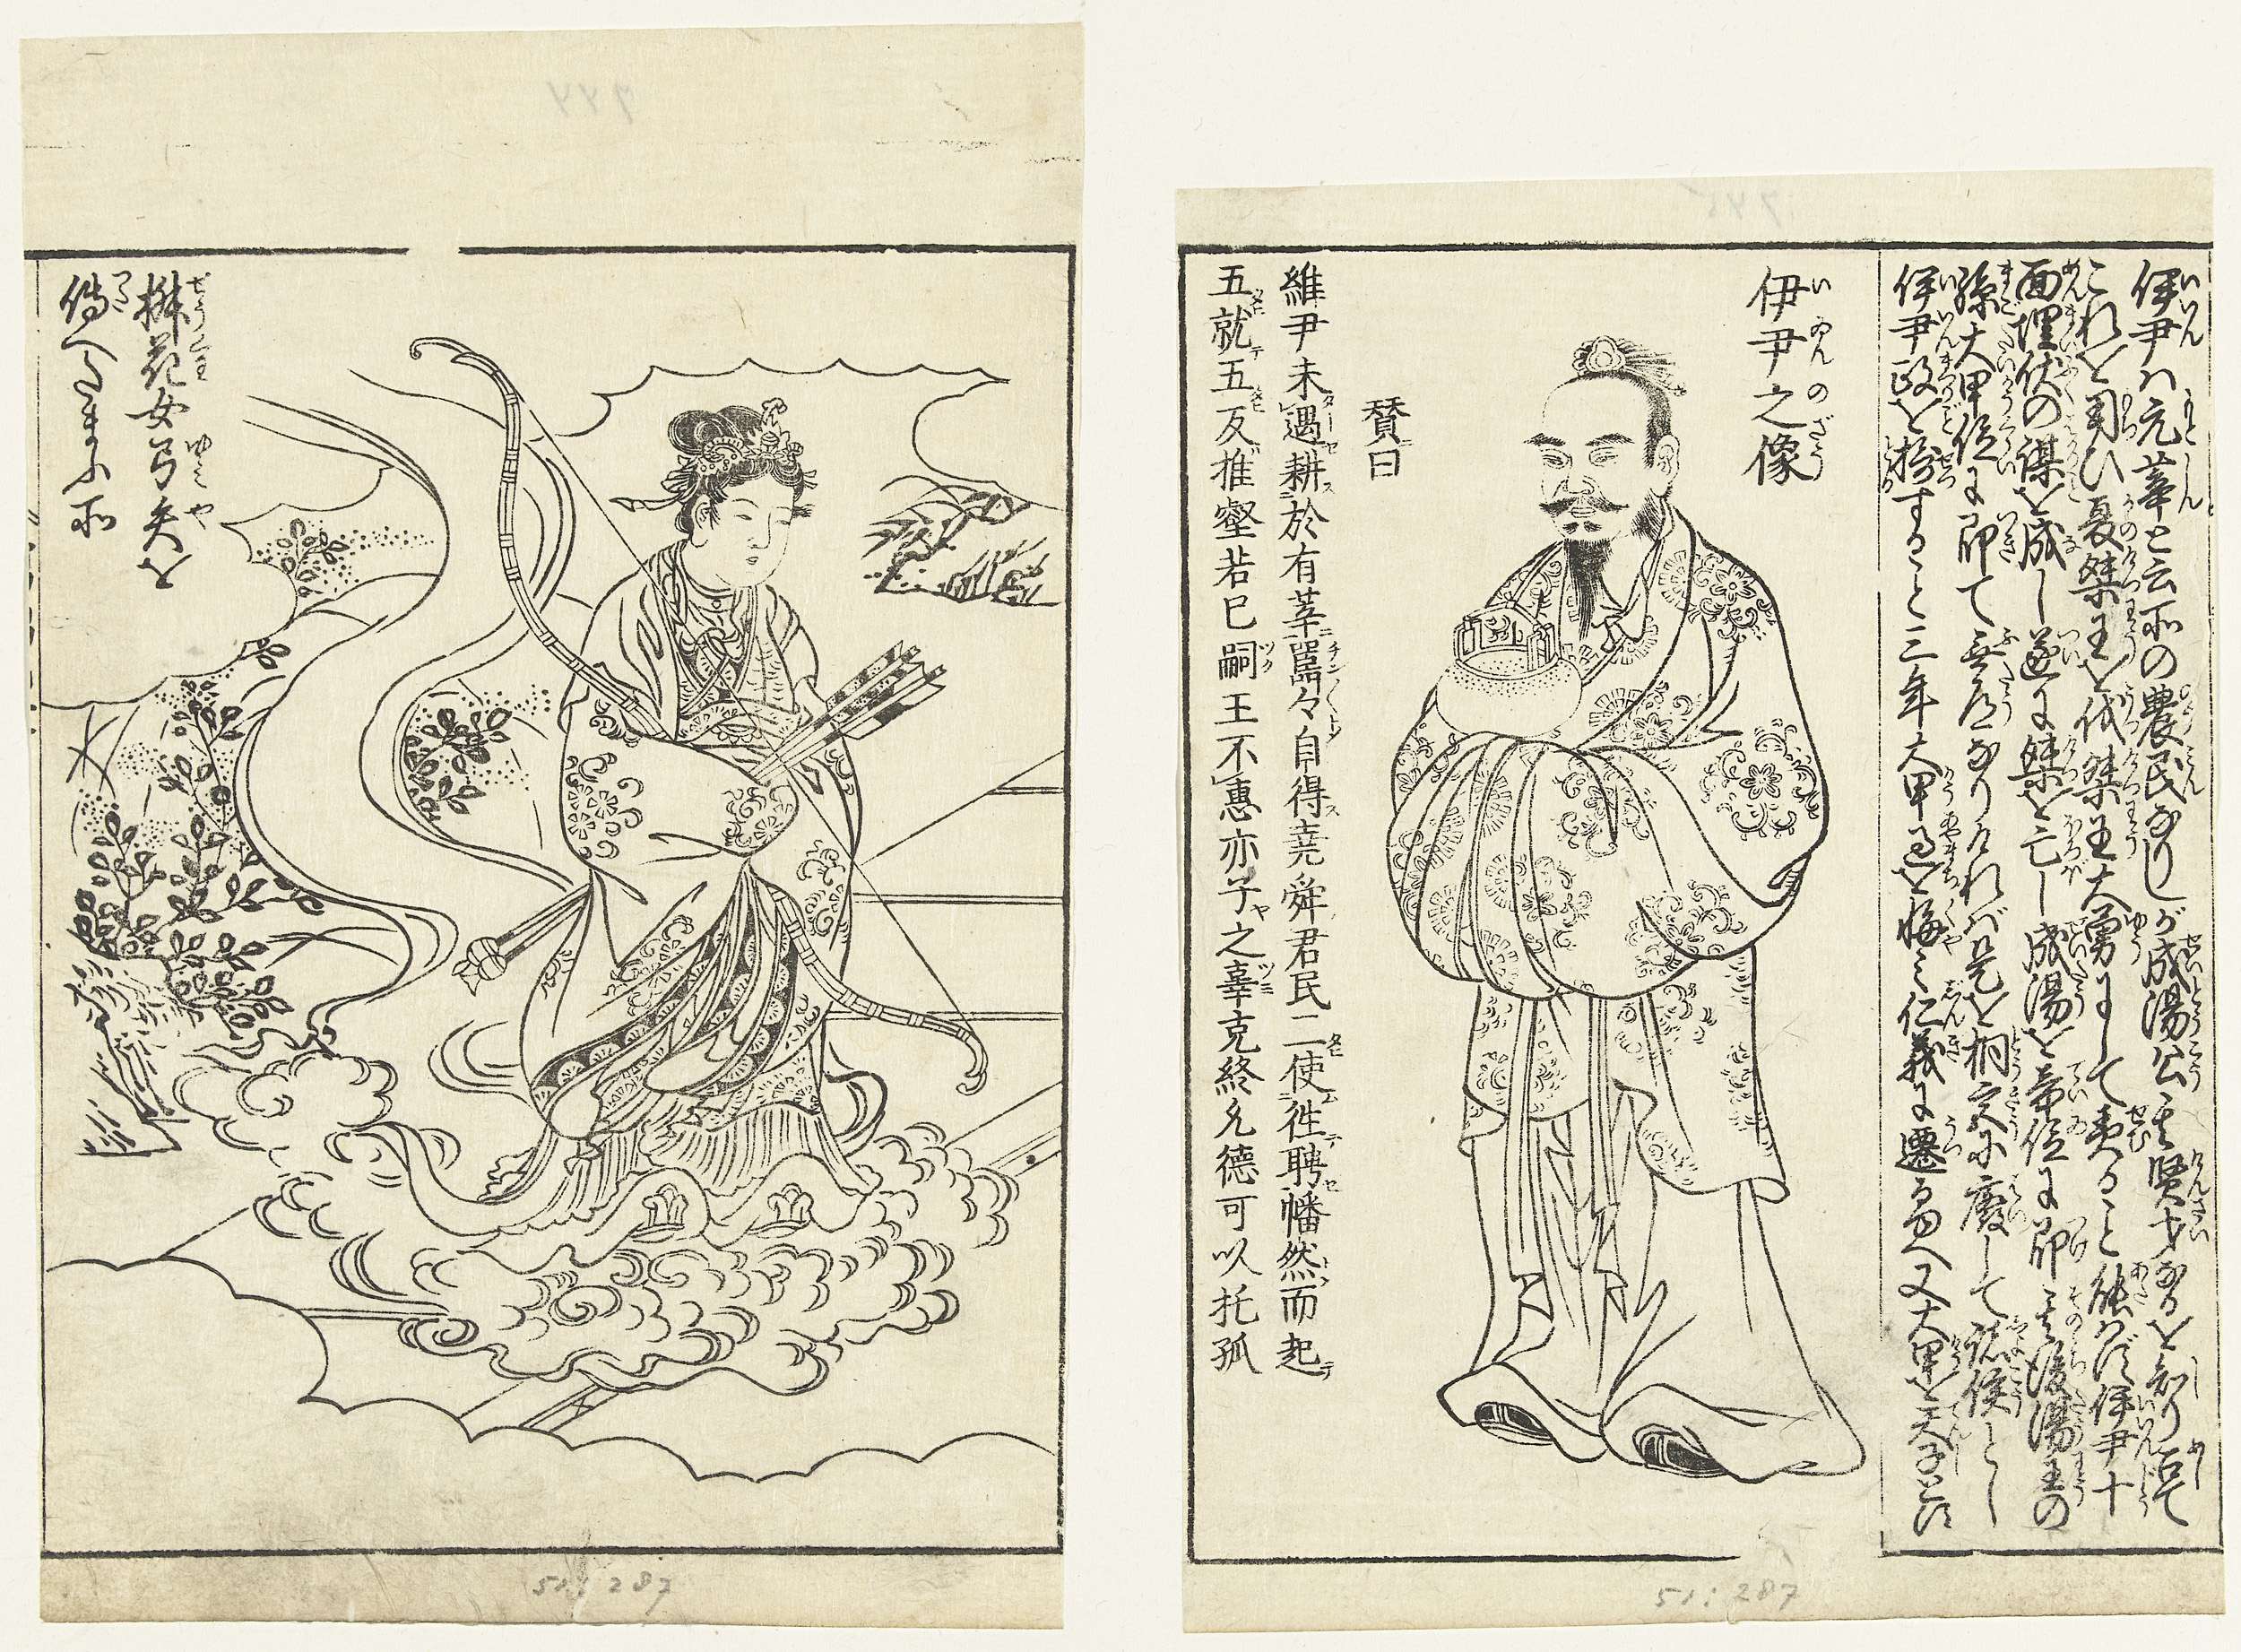 伊尹ハ元莘と云所の農民なりしが成湯公其賢才なるを知り召て
これを用ひ夏桀王を伐桀王大勇にして責ること能はず伊尹十
面埋伏の謀を成し遂に桀を亡し成湯を帝位に即其後湯王の
孫大甲位に即て無道なりければ是を桐宮に廢して諸侯とし
伊尹政を摂すること三年大甲過を悔み仁義に遷る故又大甲を天子とす
伊尹之像
いゐんのざう
賛曰
維尹未遇耕於有莘囂々自得堯舜君民二使徃聘幡然而起
五就五反推壑若已嗣王不惠亦予之辜克終允德可以托孤
椒花女弓矢を
傳へたまふ所
744
745
51:287
51:287